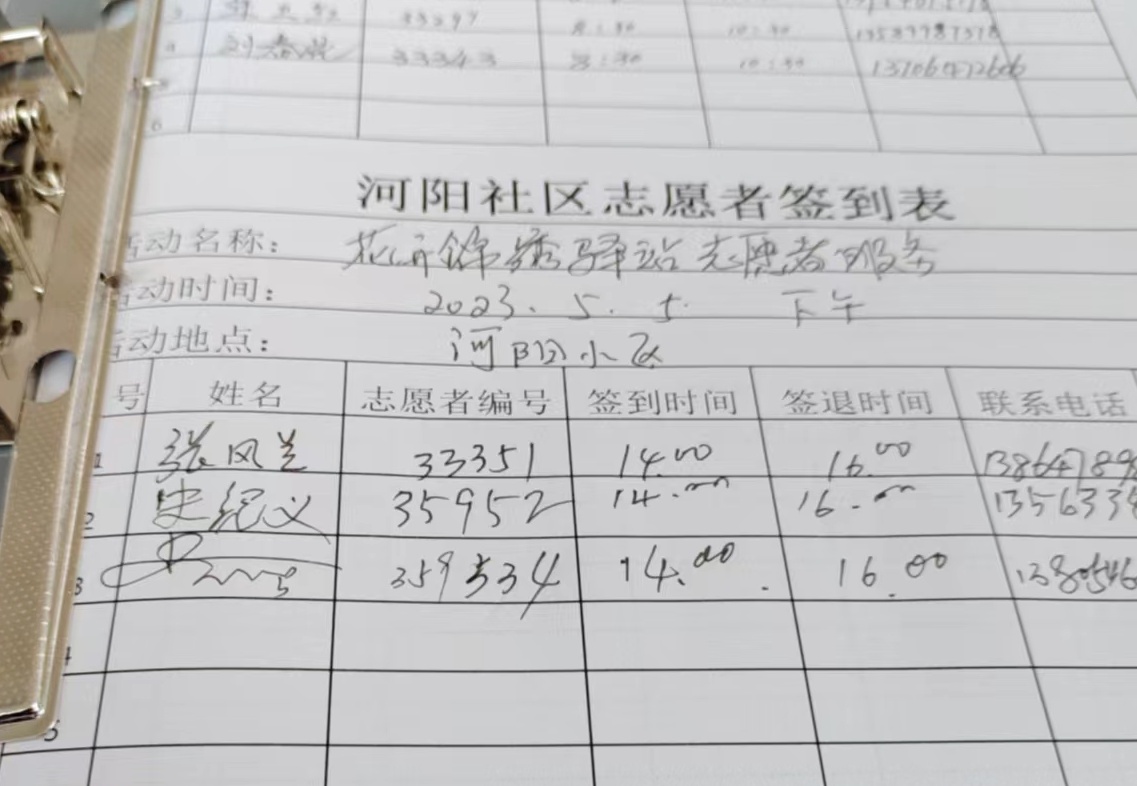 33297 8:30 10:30
4 刘春 33343 8:30 10:30 13706472606
6
河阳社区志愿者签到表
活动名称: 花开锦绣驿站志愿者服务
活动时间: 2023.5.5. 下午
活动地点: 河阳小区
号 姓名 志愿者编号 签到时间 签退时间 联系电话
1 张凤兰 33351 14.00 16.00 138647896
2 史纪义 35952 14.00 16.00 1356334
3 359534 14.00 16.00 1380546
4
5